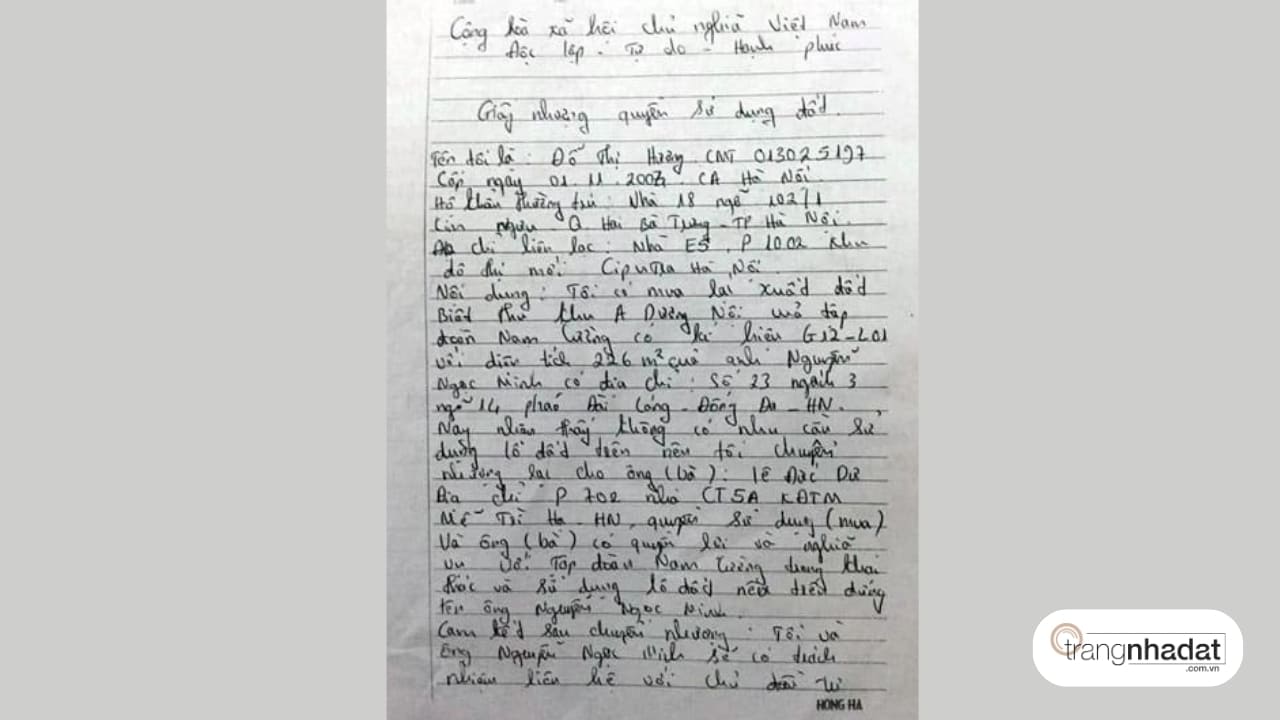 Cộng hoà xã hội chủ nghĩa Việt Nam
Độc lập - Tự do - Hạnh phúc
Giấy nhượng quyền sử dụng đất.
Tên tôi là : Đỗ Thị Hương CMT 013025197
Cấp ngày 01.11.2007. CA Hà Nội.
Hộ khẩu thường trú : Nhà 18 ngõ 102/1
ngưu - Q Hai Bà Trưng - TP Hà Nội.
chỉ liên lạc : Nhà E5, P 1002 khu
đô thị mới Ciputra Hà Nội.
Nội dung : Tôi có mua lại xuất đất
Biệt thự khu A Dương Nội tập
đoàn Nam Cường có kí hiệu G12-L01
với diện tích 226 m² của anh Nguyễn
Ngọc Minh có địa chỉ : Số 23 ngách 3
ngõ 14 pháo Đài Láng - Đống Đa - HN.
Nay nhận thấy không có nhu cầu sử
dụng lô đất trên nên tôi chuyển
nhượng lại cho ông (bà) : Lê Đức Dư
Địa chỉ P 702 nhà CT5A KĐTM
Mễ Trì Hạ - HN, quyền sử dụng (mua)
Và ông (bà) có quyền lợi và nghĩa
vụ với Tập đoàn Nam Cường khai
thác và sử dụng lô đất nêu trên đứng
tên ông Nguyễn Ngọc Minh.
Cam kết sau chuyển nhượng : Tôi và
ông Nguyễn Ngọc Minh sẽ có trách
nhiệm liên hệ với chủ đầu tư
HONG HA
trangnhadat
.com.vn